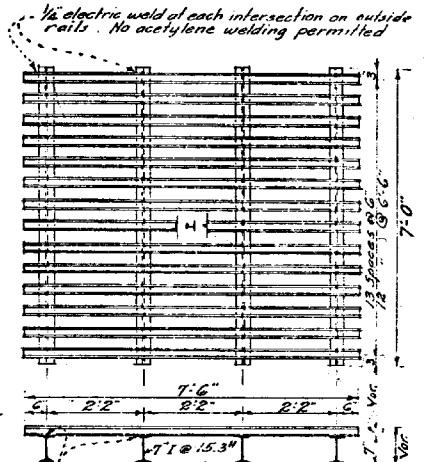 1/4" electric weld at each intersection on outside
rails. No acetylene welding permitted
3"
13 Spaces @ 6"
12 @ 6'-6"
7'-0"
3"
7'-6"
6" 2'-2" 2'-2" 2'-2" 6"
Var.
7"
7" I @ 15.3#
Var.